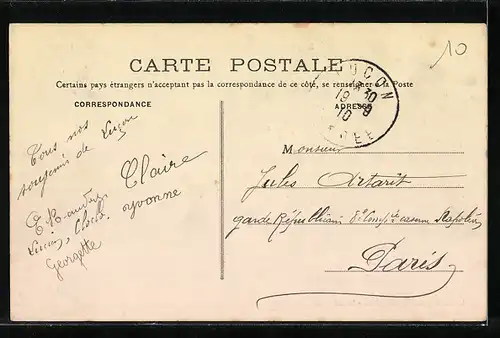 10
CARTE POSTALE
Certains pays étrangers n'acceptant pas la correspondance de ce côté, se renseigner à la Poste
CORRESPONDANCE
ADRESSE
LUÇON
19 30
10
Tous nos
souvenirs de Luçon
Claire
Yvonne
Georgette
Monsieur
Jules Artarit
garde Républicain 8e Comp. caserne Napoléon
Paris